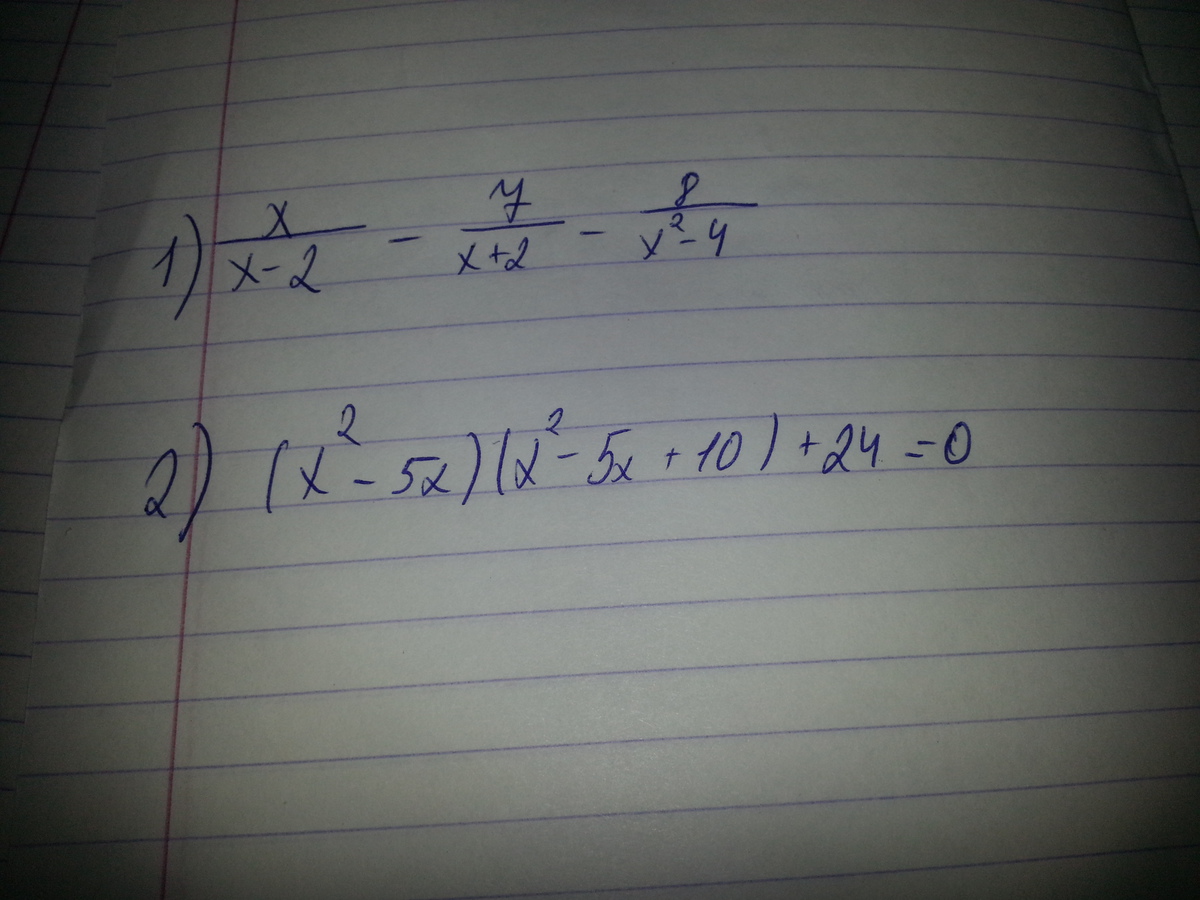 1) x/(x-2) - y/(x+2) - 8/(x²-4)
2) (x² - 5x)(x² - 5x + 10) + 24 = 0